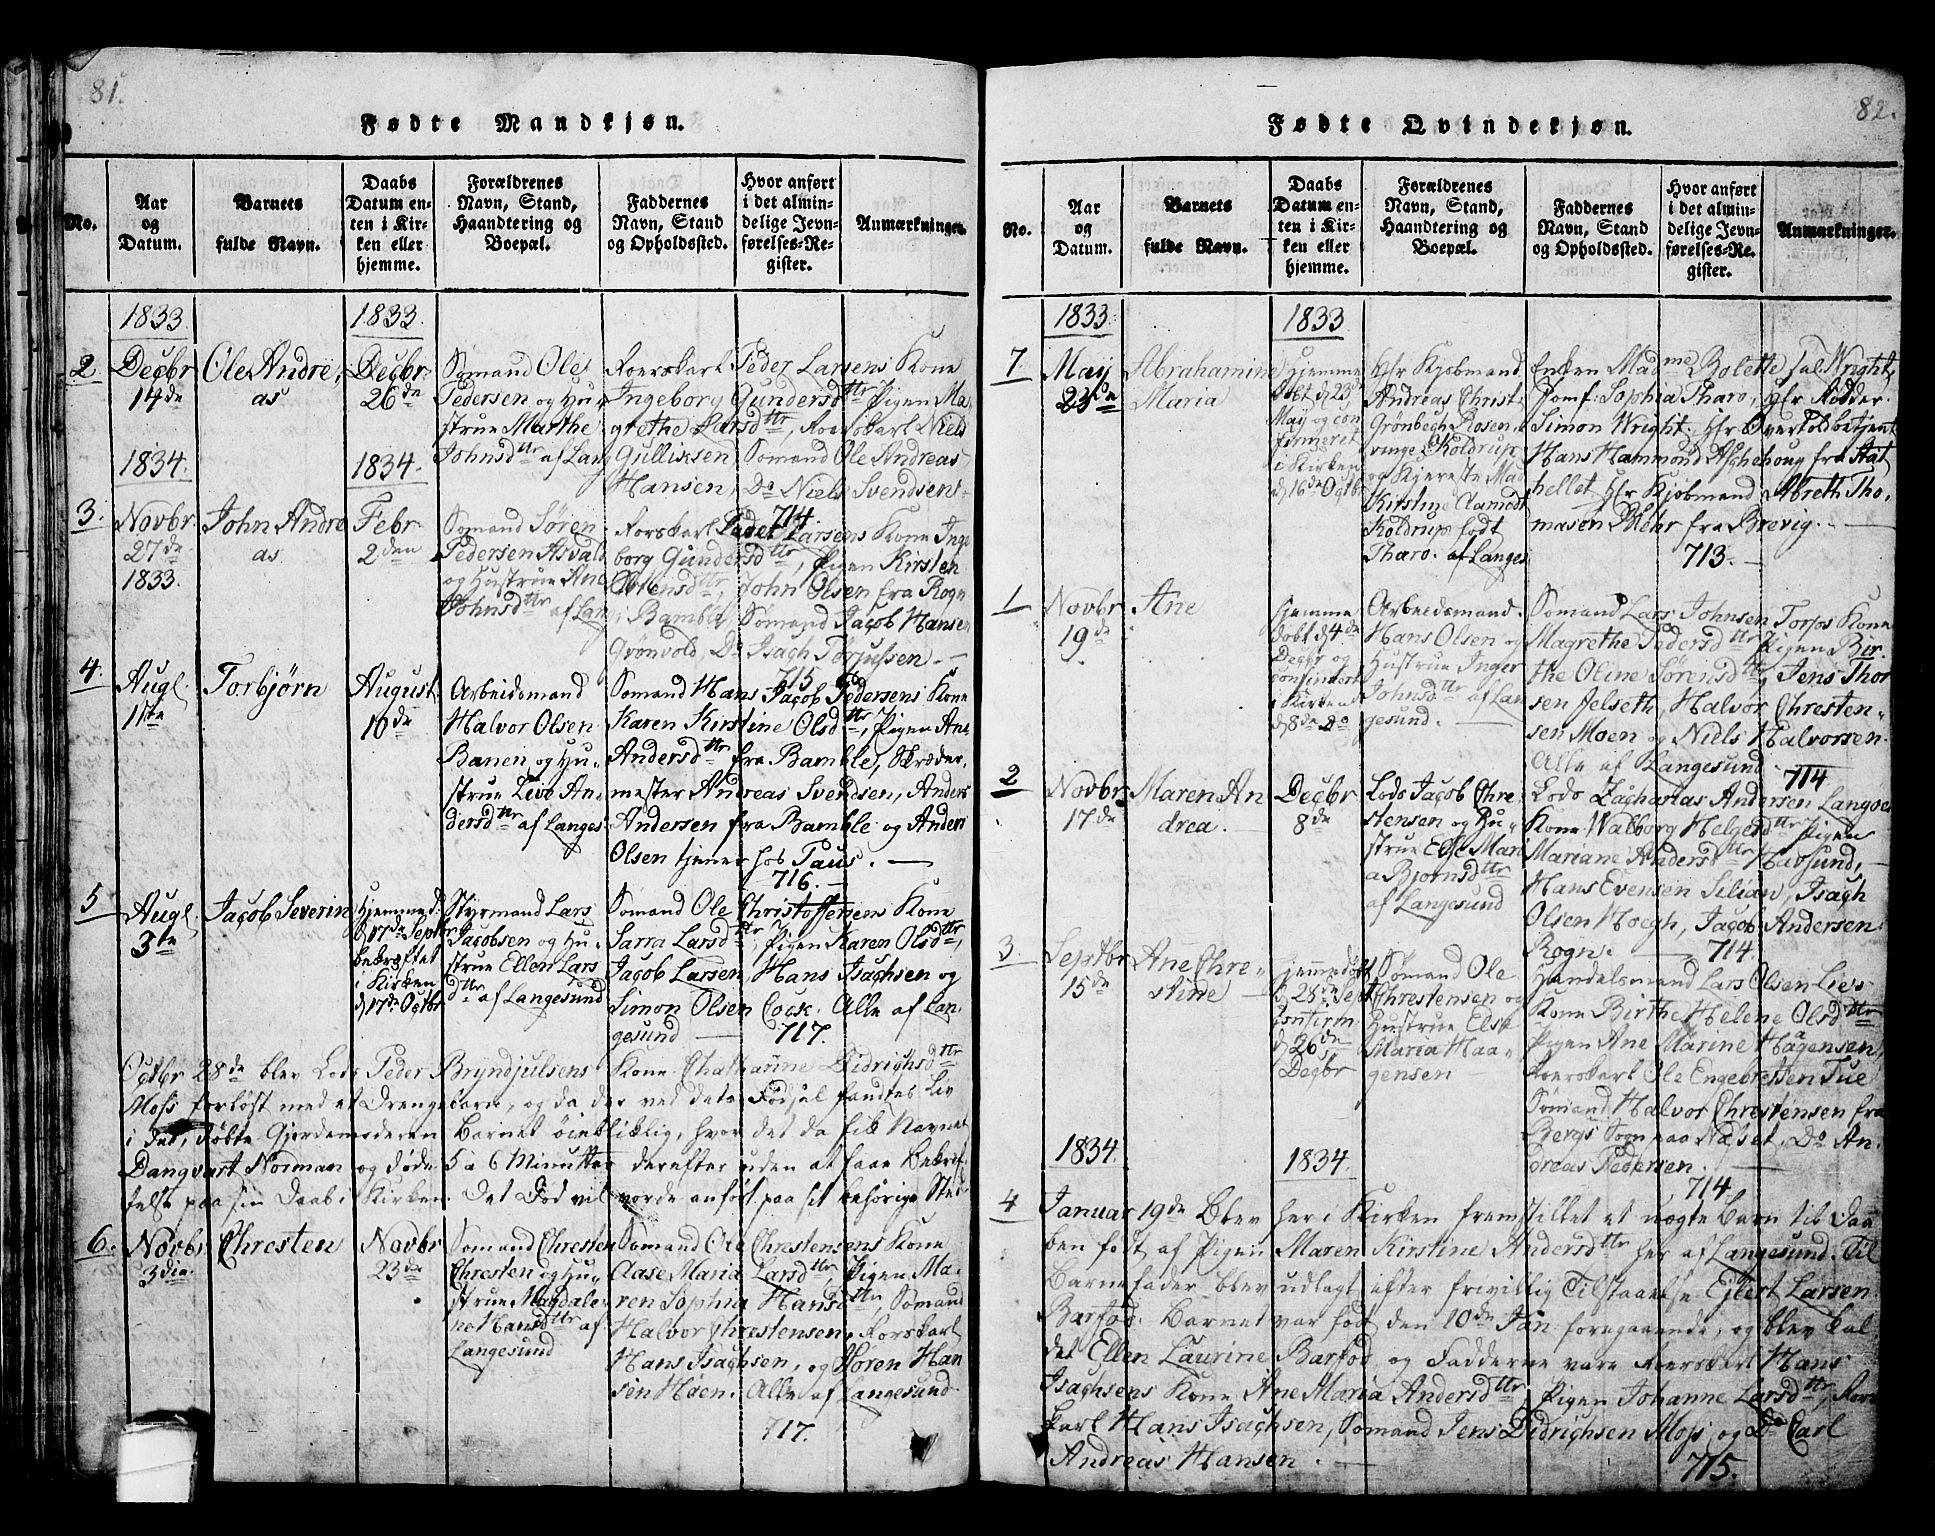 81.
Fødte Mandkjøn.
No.
Aar
og
Datum.
Barnets
fulde Navn.
Daabs
Datum en-
ten i Kir-
ken eller
hjemme.
Forældrenes
Navn, Stand,
Haandtering og
Boepæl.
Faddernes
Navn, Stand
og Opholdssted.
Hvor anført
i det almin-
delige Jevn-
førelses-Re-
gister.
Anmærkninger.
1833
1833.
2
Decbr
14de
Ole Andre,
as
Decbr.
26de
Sømand Oles
Pedersen og Hu-
strue Marthe
Johnsdttr af Lang
Roerskarl Peder Larsens Kone
Ingeborg Gundersdttr Pigen Ma-
grethe Larsdttr, Roerskarl Niels
Gulliksen, Sømand Ole Andreas
Hansen, Do Niels Svendsen
714
1834.
1834.
3.
Novbr
27de
1833.
John Andre
as
Febr
2den
Sømand Søren
Pedersen Asvald
og Hustrue Ane
Johnsdttr af Lang
Rorskarl Peder Larsens Kone Inge
borg Gundersdttr, Pigen Kirsten
John Olsen fra Rogn
i Bamble Sømand Jacob Hansen
Grönvold, Do Isach Torjussen.
715
4.
Augl.
11te
Torbjørn
August
10de
Arbeidsmand
Halvor Olsen
Banen og Hu-
strue Leve An
dersdttr af Langes
Somand Hans Jacob Pedersens Kone
Karen Kirstine Olsdttr, Pigen Ane
Andersdttr fra Bamble, Skræder,
mester Andreas Svendsen, Anders
Andersen fra Bamble og Anders
Olsen tjener hos Taus.
716.
5
Augl.
3te
Jacob Severin
Hjemmed.
d 17de Septbr
bekræftet
i Kirken
d 17de Octbr
Styrmand Lars
Jacobsen og Hu-
strue Ellen Lars
dttr af Langesund
Sømand Ole Christoffersens Kone
Sarra Larsdttr, Pigen Karen Olsdttr,
Jacob Larsen, Hans Isachsen og
Simon Olsen Cock. Alle af Lan
gesund
717.
Octbr 28de blev Lods Peder Bryndjulsens Kone Chatharine Didrichsdttr
Moss forløst med et Drengebarn, og da der ved dets Fødsel fandtes Liv
i det, døbte Gjordemoderen Barnet öiebliklig, hvor det da fik Navnet
Dangvart Norman og døde 5 a 6 Minutter derefter uden at faae Bekræf
telse paa sin Daab i Kirken. Det Død vil vorde anført paa sit behørige Sted.
6.
Novbr
3dia.
Chresten
Novbr
23de
Sømand Chresten
Chresten og Hu-
strue Magdale
ne Hansdttr af
Langesund
Sømand Ole Chrestensens Kone
Aase Maria Larsdttr, Pigen Ma-
ren Sophia Hansdttr, Sømand
Halvor Chrestensen, Rorskarl
Hans Isachsen, og Søren Han
sen Höen. Alle af Langesund
717.
82.
Fødte Qvindekjøn.
No.
Aar
og
Datum.
Barnets
fulde Navn.
Daabs
Datum en-
ten i Kir-
ken eller
hjemme.
Forældrenes
Navn, Stand,
Haandtering og
Boepæl.
Faddernes
Navn, Stand
og Opholdssted.
Hvor anført
i det almin-
delige Jevn-
førelses-Re-
gister.
Anmærkninger.
1833.
1833
7.
May
23de
Abrahamine
Maria
Hjemme
døbt d 23d
May og con
firmeret
i Kirken
d 16de Octbr
Hr Kjøbmand
Andreas Christ.
Grönbech Rosen,
vinge Koldrup
og Kjereste Mad
Kirstine Aamodt
Koldrup født
Tharo. af Langes
Enken Madme Bolette sal Wright,
Jomf. Sophia Tharo, Hr Redder
Simon Wright, Hr Overtoldbetjent
Hans Hammond Aschehoug fra Stat
hellet Hr Kjøbmand Abreth Tho,
mason Mohr fra Brevig.
713.
1
Novbr
19de
Ane
hjemme
døbt d 4de
Decbr og
confirmert
i Kirken
d 8de Do
Arbeidsmand
Hans Olsen og
Hustrue Inger
Johnsdttr af Lan
gesund.
Sømand Lars Johnsen Torps Kone
Magrethe Pedersdttr Pigen Bir
the Oline Sørensdttr, Jens Thor
sen Jelseth, Halvor Chresten-
sen Moen og Niels Halvorsen.
Alle af Langesund
714
2
Novbr
17de
Maren An
drea.
Decbr
8de
Lods Jacob Chre
stensen og Hu-
strue Else Mari
a Bjornsdttr
af Langesund
Lods Zacharias Andersen Langøes
Kone Walborg Helgesdttr Pigen
Mariane Andersdttr Havsund,
Hans Evensen Silian, Isach
Olsen Hoegh, Jacob Andersen
Rogn.
714
3.
Septbr
15de
Ane Chre-
stine
hjemmedøbt
d 28de Sept
Confirm
d 26de
Decbr
Sømand Ole
Chrestensen og
Hustrue Else
Maria Haa-
gensen
Handelsmand Lars Olsen Lies
Kone Birthe Helene Olsdttr
Pigen Ane Marine Hagensen,
Roerskarl Ole Engebretsen Tue
Sømand Halvor Chrestensen fra
Bergs Sogn paa Næset, Do An.
dreas Pedersen.
714.
1834.
1834.
4
Januar 19de Blev her i Kirken fremstillet et uægte Barn til Daa
ben født af Pigen Maren Kirstine Andersdttr her af Langesund. Til
Barnefader blev udlagt efter frivillig Tilstaaelse Ejlert Larsen
Barfod. Barnet var fød den 10de Jan foregaaende, og blev kal
det Ellen Laurine Barfod og Fadderne vare Roerskarl Hans
Isachsens Kone Ane Maria Andersdttr Pigen Johanne Larsdttr, Rors
karl Hans Isachsen, Sømand Jens Didrichsen Moss, og Do Carl
Andreas Hansen.
715.